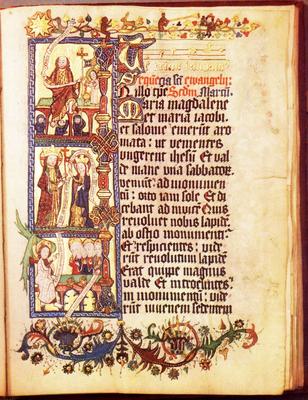 Sequēcia sc̄i ewangelij
Illo tp̄e Sedm̄ Marcū
Maria magdalene
et maria iacobi
et salome emerūt aro
mata: ut venientes
ungerent ihesū Et val
de mane una sabbator̄
veniūt ad monumen
tū: orto iam sole Et di
cebant ad invicē Quis
revoluet nobis lapidē
ab ostio monumenti
Et respicientes: vide
rūt revolutum lapidē
Erat quippe magnus
valde Et introeuntes
in monumentū: vide
rūt iuvenem sedentem